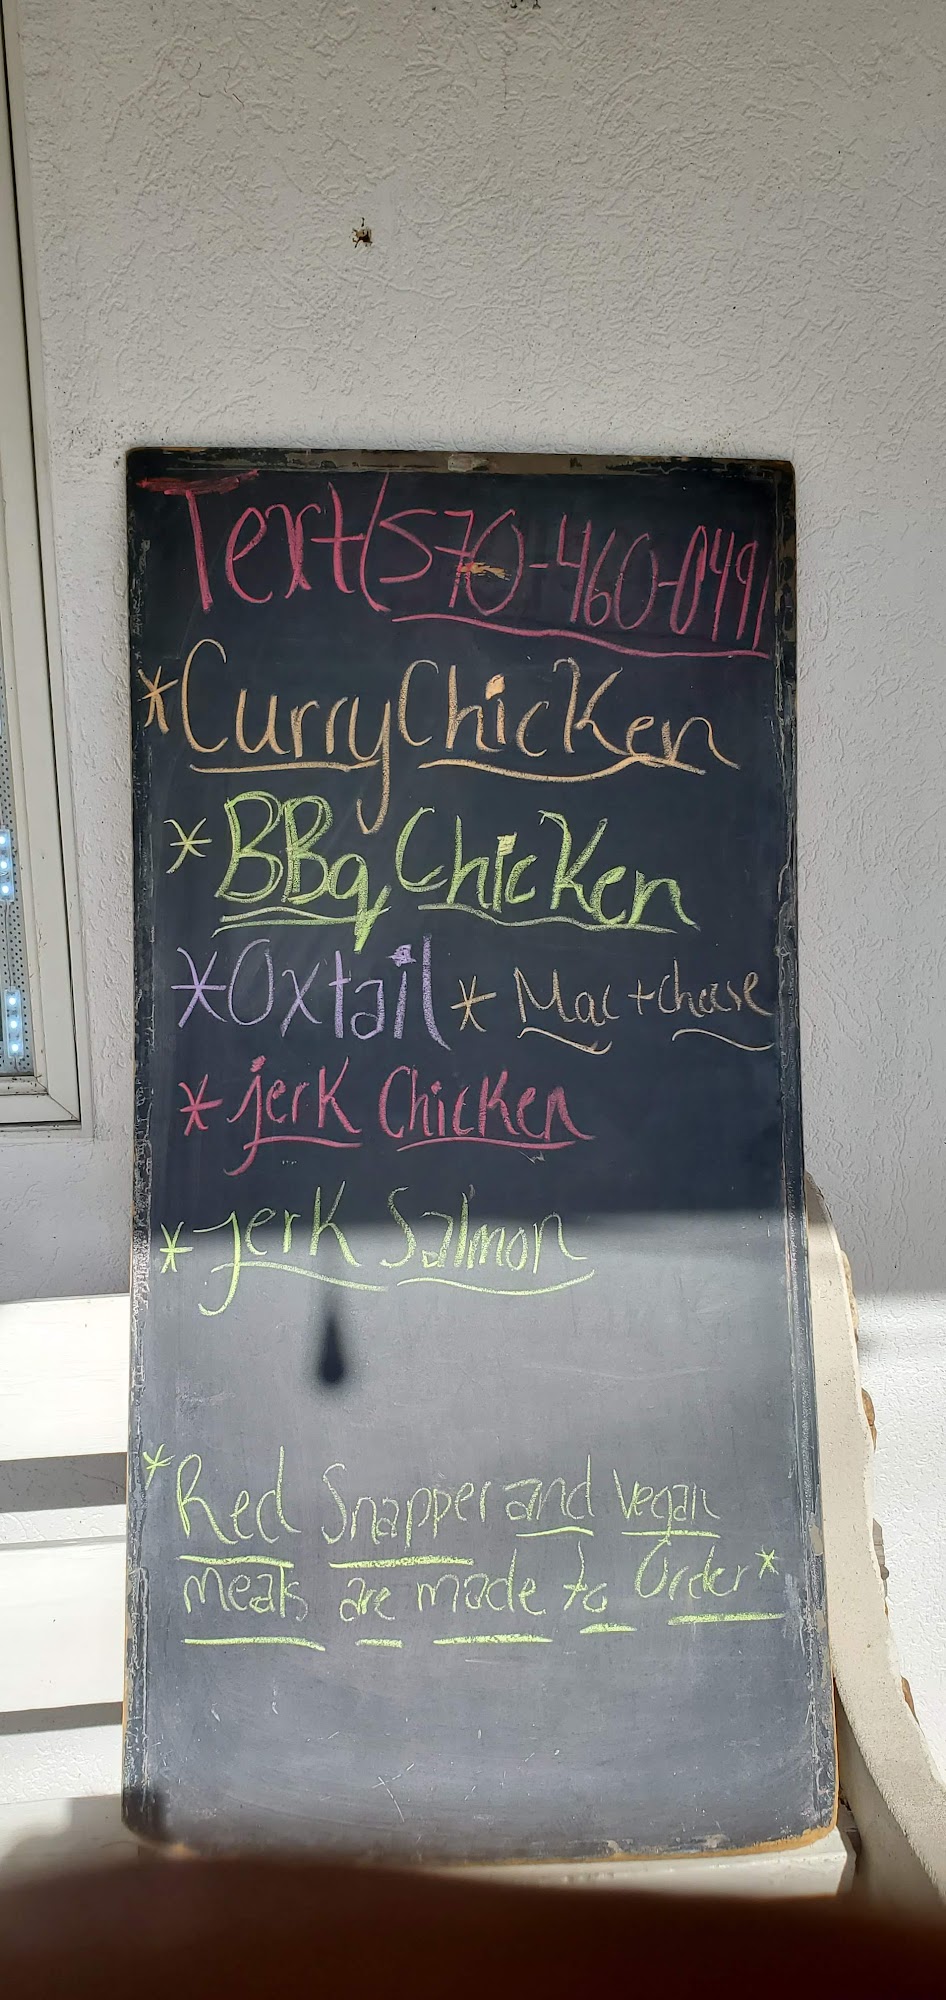 Text (570)-460-0491
*Curry Chicken
*BBq Chicken
*Oxtail * Mac + cheese
*jerk Chicken
*jerk Salmon
*Red Snapper and vegan
meals are made to Order*